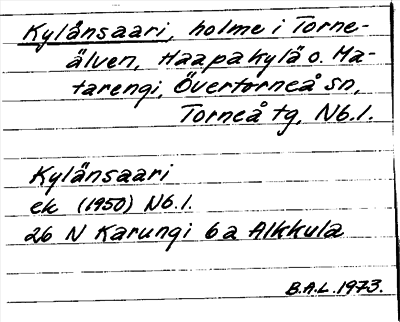 Kylånsaari, holme i Torne-
älven, Haapakylä o. Ma-
tarengi, Övertorneå sn,
Torneå tg, Nb.l.
Kylänsaari
ek (1950) Nb.l.
26 N Karungi 6a Alkkula
B.A.L. 1973.